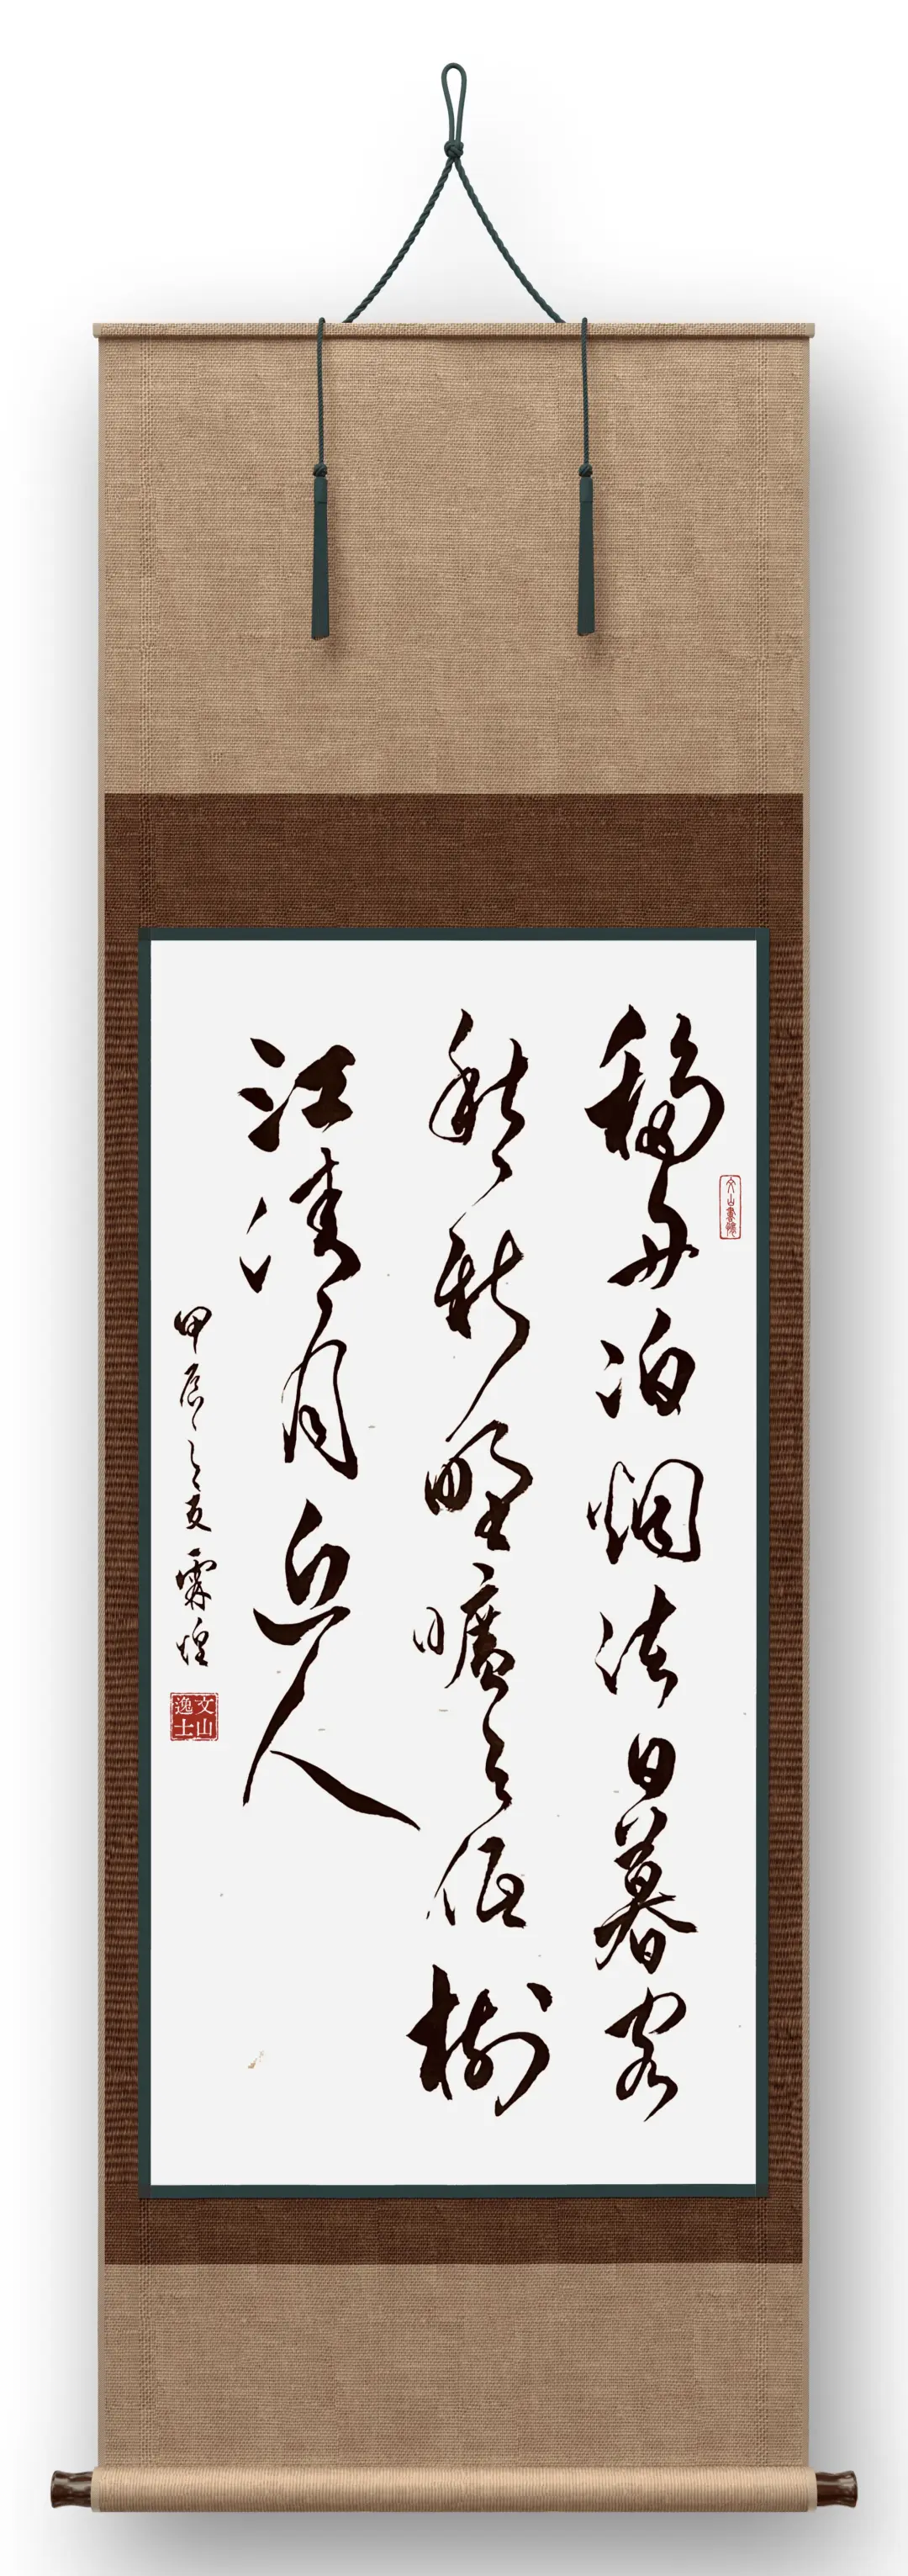 移舟泊烟渚日暮客
愁新野曠天低樹
江清月近人
甲辰之夏霖煌
文山
文山逸士